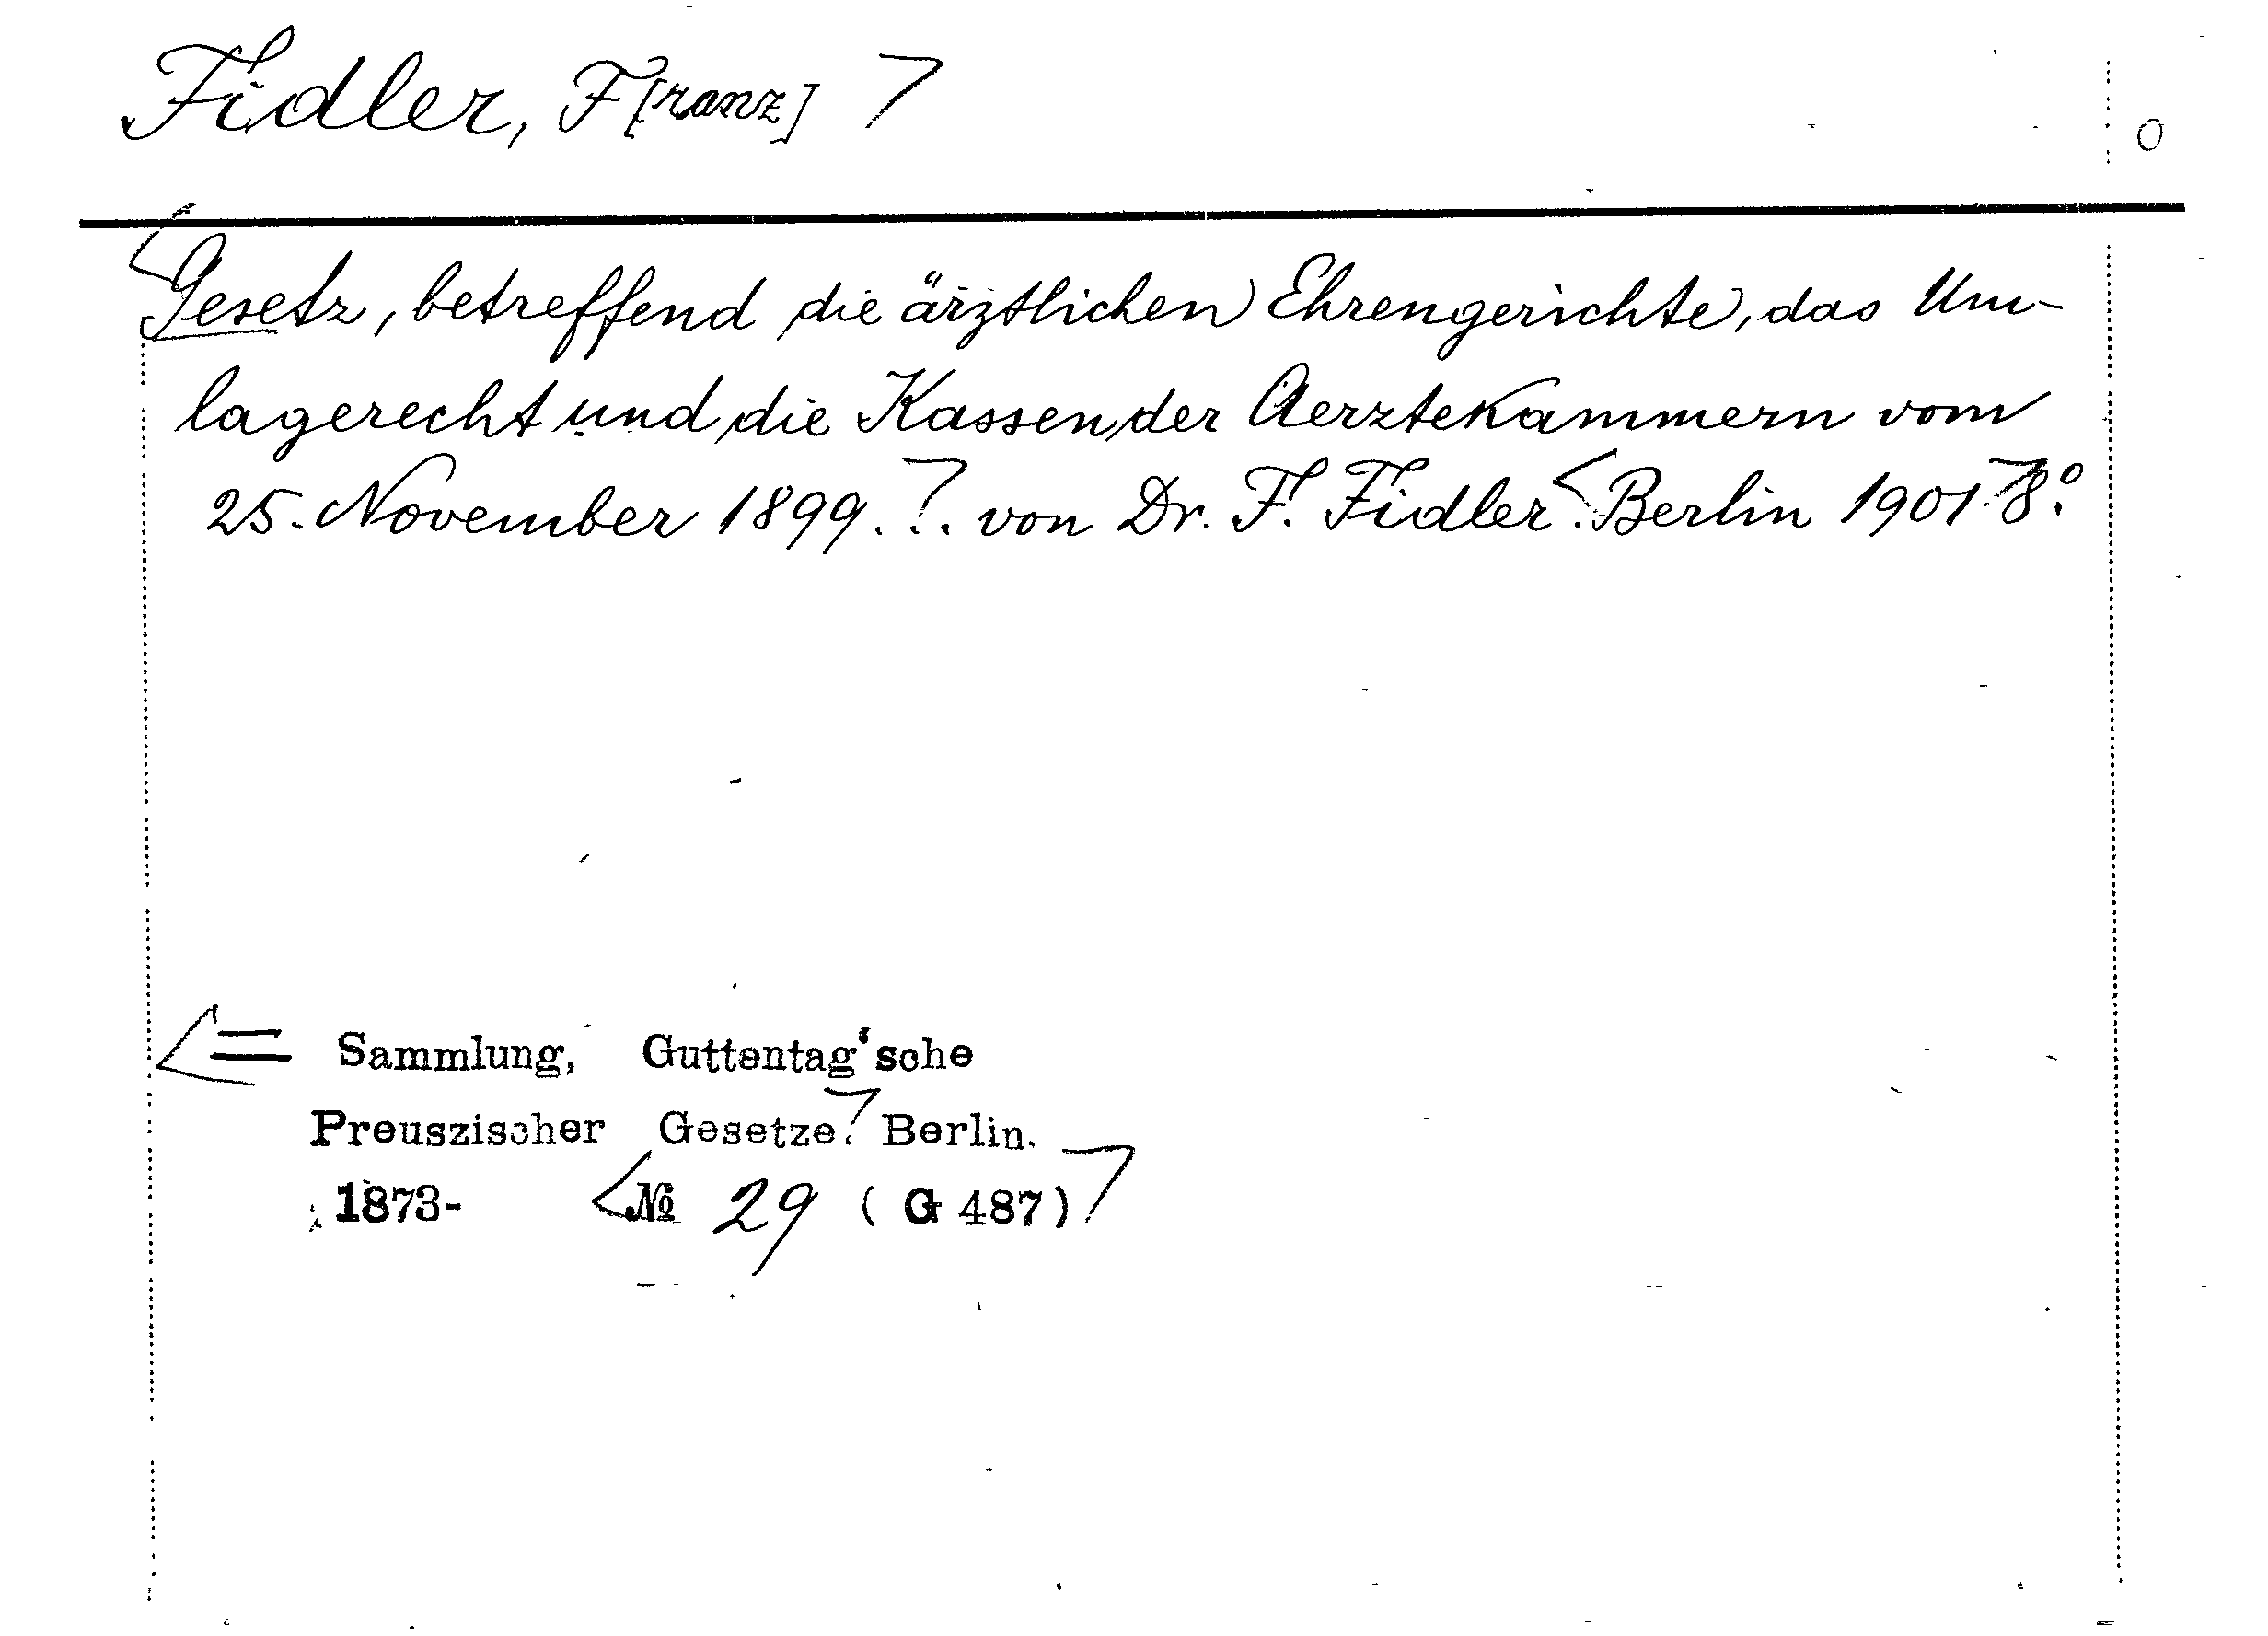 Fidler, F[ranz]
0
Gesetz, betreffend die ärztlichen Ehrengerichte, das Um-
lagerecht und die Kassen der Aerztekammern vom
25. November 1899. . von Dr. F. Fidler. Berlin 1901. 8°.
= Sammlung, Guttentag'sche
Preuszischer Gesetze. Berlin.
1873- № 29 (G 487)